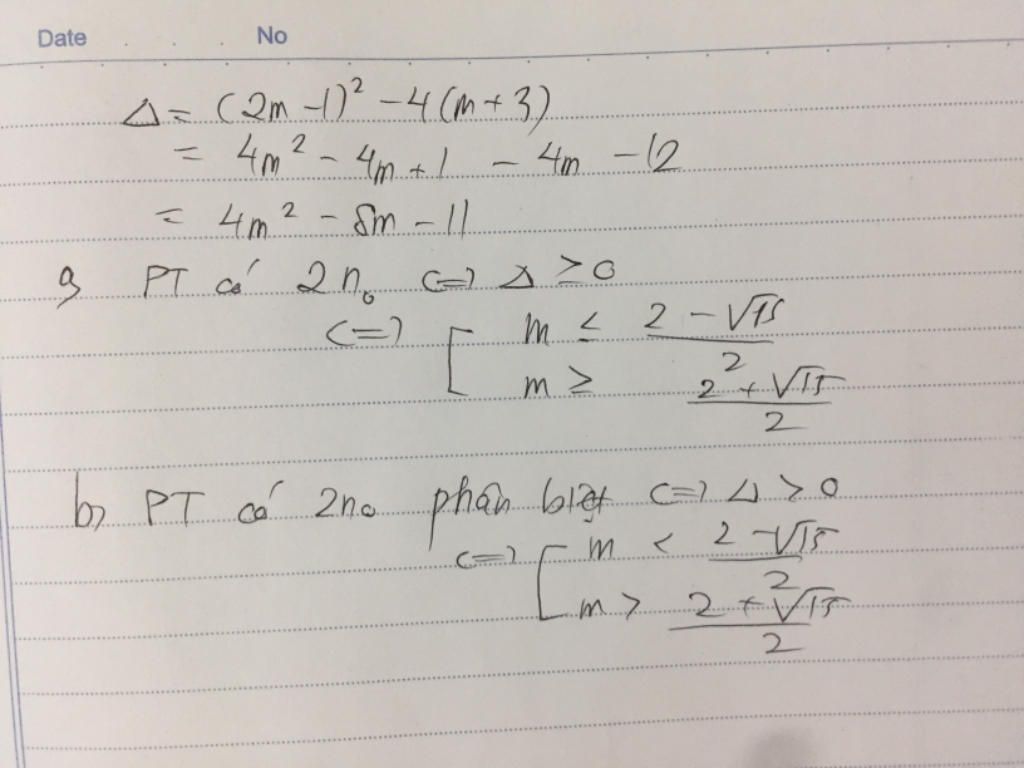 Date No
Δ = (2m - 1)² - 4(m + 3)
= 4m² - 4m + 1 - 4m - 12
= 4m² - 8m - 11
a) PT có 2 n₀ <=> Δ ≥ 0
<=> [ m ≤ (2 - √15)/2
m ≥ (2 + √15)/2
b) PT có 2n₀ phân biệt <=> Δ > 0
<=> [ m < (2 - √15)/2
m > (2 + √15)/2